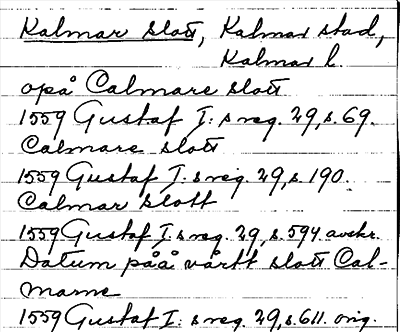 Kalmar slott, Kalmar stad,
Kalmar l.
opå Calmare slott
1559 Gustaf I: s reg. 29, s. 69.
Calmare slott
1559 Gustaf I: s reg. 29, s. 190.
Calmar Slott
1559 Gustaf I: s reg. 29, s. 594 avskr.
Datum påå vårtt slott Cal-
marne
1559 Gustaf I: s reg. 29, s. 611. orig.